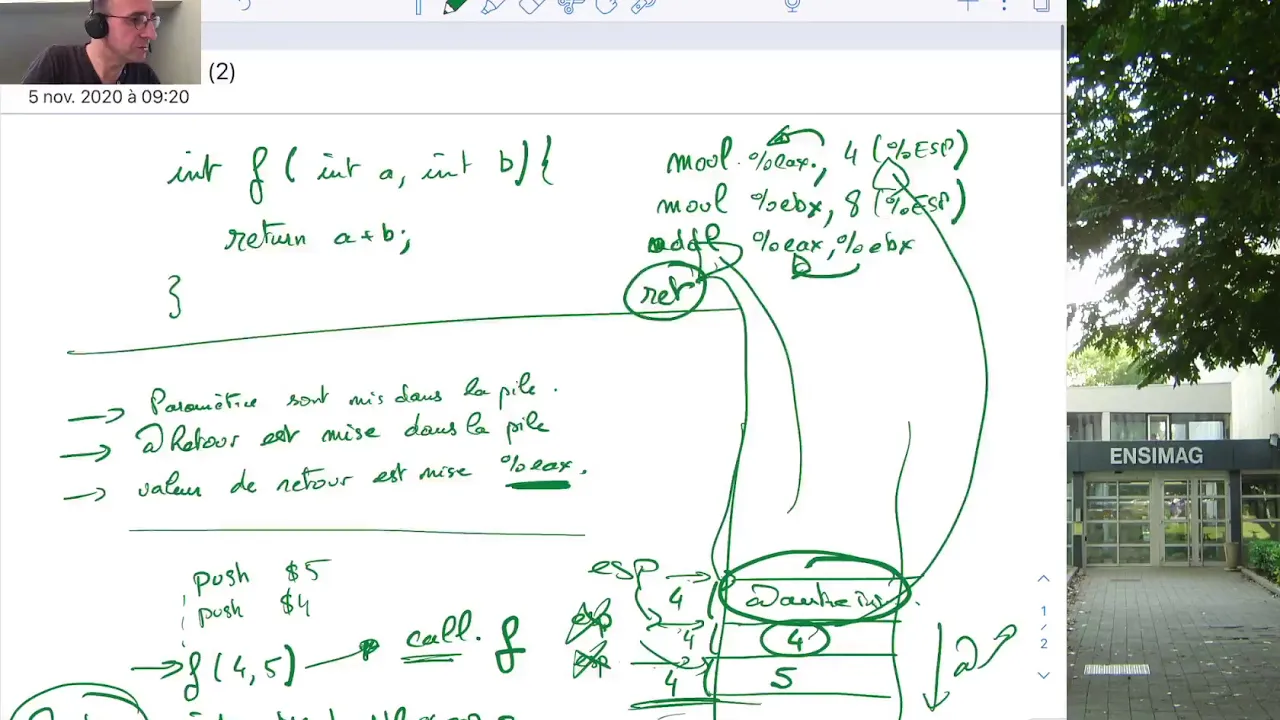 (2)
5 nov. 2020 à 09:20
int f( int a, int b){
return a+b;
}
movl %eax, 4 (%ESP)
movl %ebx, 8 (%ESP)
addl %eax,%ebx
ret
→ Paramètre sont mis dans la pile.
→ @Retour est mise dans la pile
→ valeur de retour est mise %eax.
push $5
push $4
→ f(4,5) → call. f
esp → 4
esp 4 4
esp 4 5
@
1
/
2
ENSIMAG